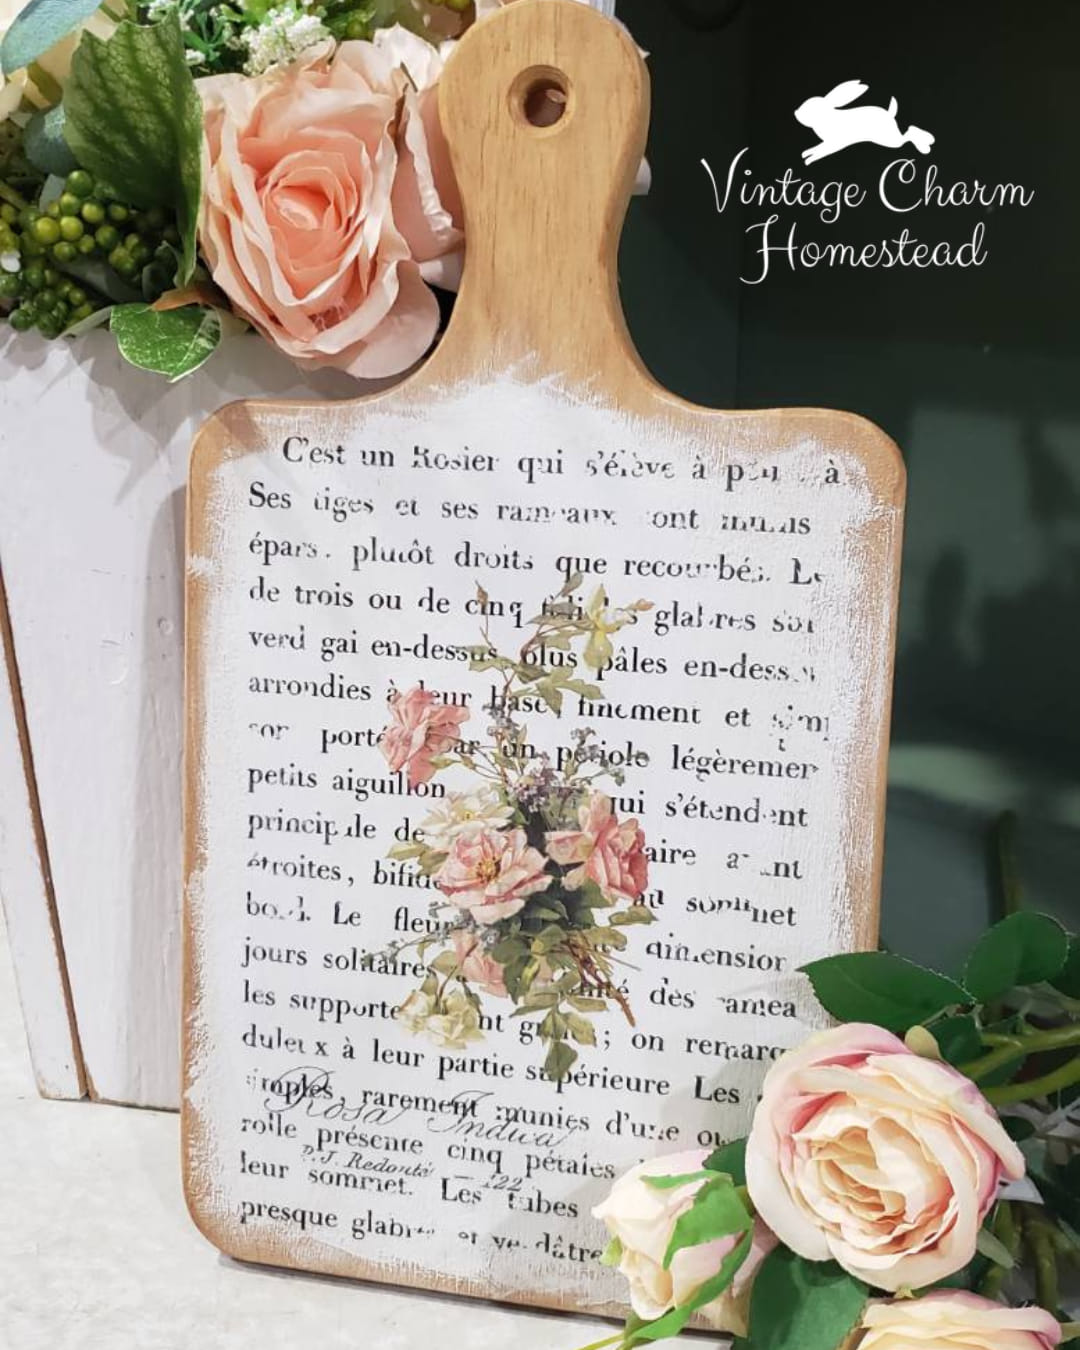 Vintage Charm
Homestead
C'est un Rosier qui s'élève à
Ses tiges et ses rameaux sont munis
épars. plutôt droits que recourbés. Le
de trois ou de cinq folioles glabres sont
verd gai en-dessus, plus pâles en-dessous
arrondies à leur base, finement et
son porté par un pétiole légèrement
petits aiguillon qui s'étendent
principale de aire ayant
étroites, au sommet
bord. Le fleur dimension
jours solitaires, des ramea
les supporte nt ; on remarq
à leur partie supérieure Les
simples, rarement munies d'une
Rosa Indica
présente cinq pétales
P. J. Redouté 122
leur sommet. Les tubes
presque glabres et verdâtre